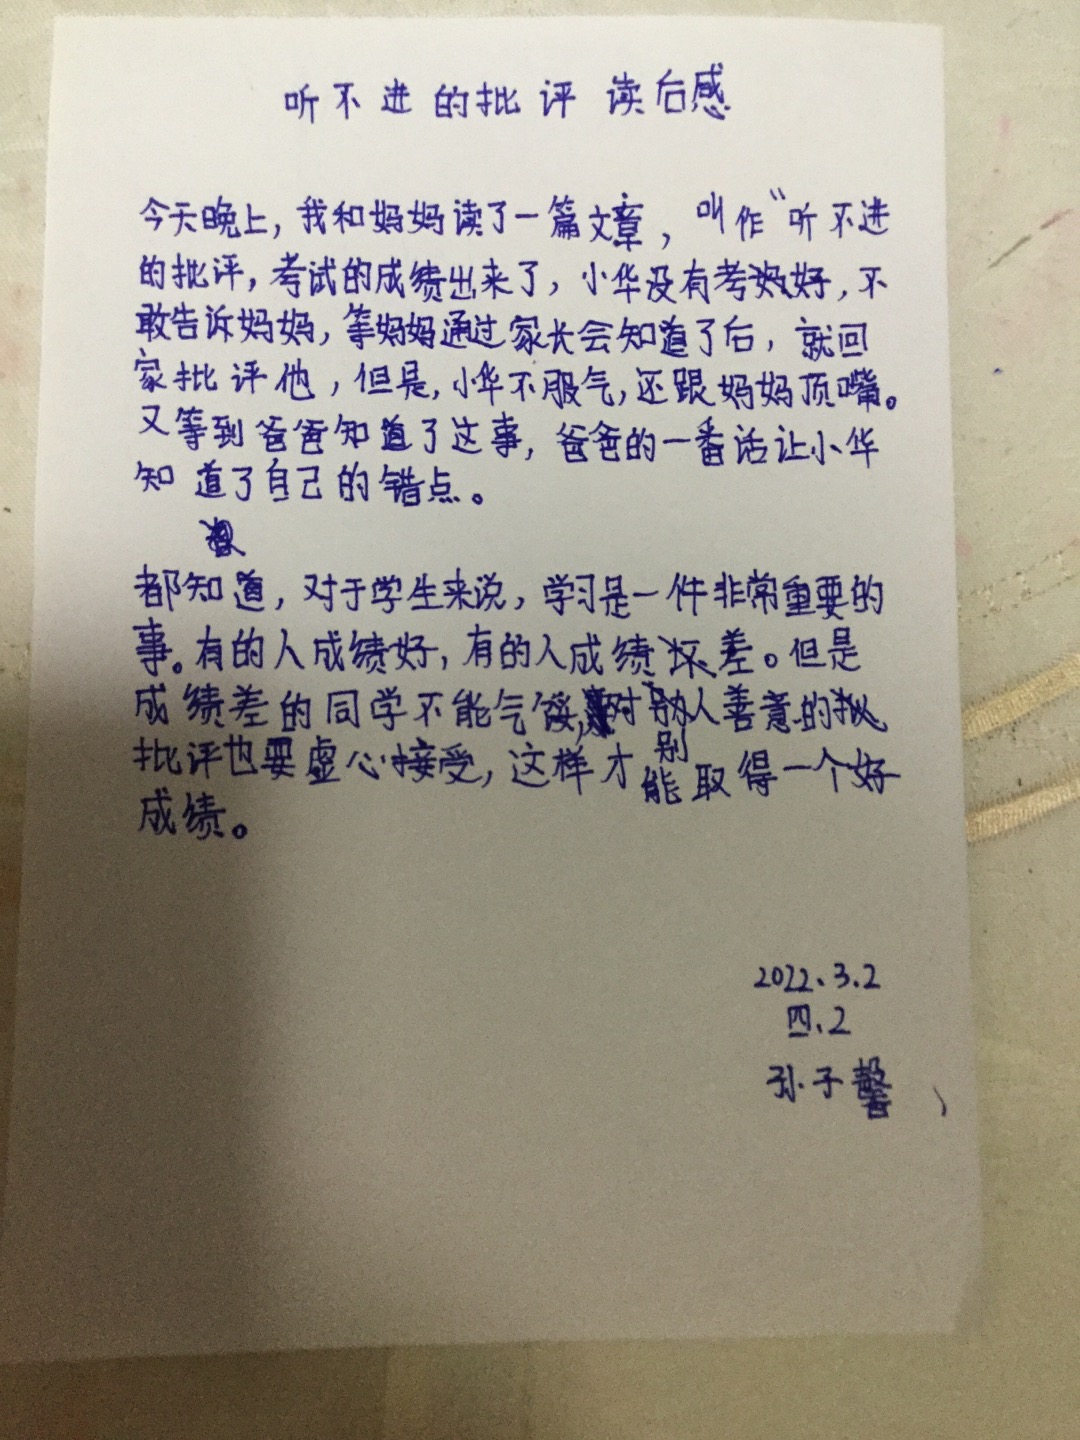 听不进的批评 读后感
今天晚上，我和妈妈读了一篇文章，叫作“听不进
的批评，考试的成绩出来了，小华没有考好，不
敢告诉妈妈，等妈妈通过家长会知道了后，就回
家批评他，但是，小华不服气，还跟妈妈顶嘴。
又等到爸爸知道了这事，爸爸的一番话让小华
知道了自己的错点。
都知道，对于学生来说，学习是一件非常重要的
事。有的人成绩好，有的人成绩差。但是
成绩差的同学不能气馁，对别人善意的
批评也要虚心接受，这样才能取得一个好
成绩。
2022.3.2
四.2
孙子馨